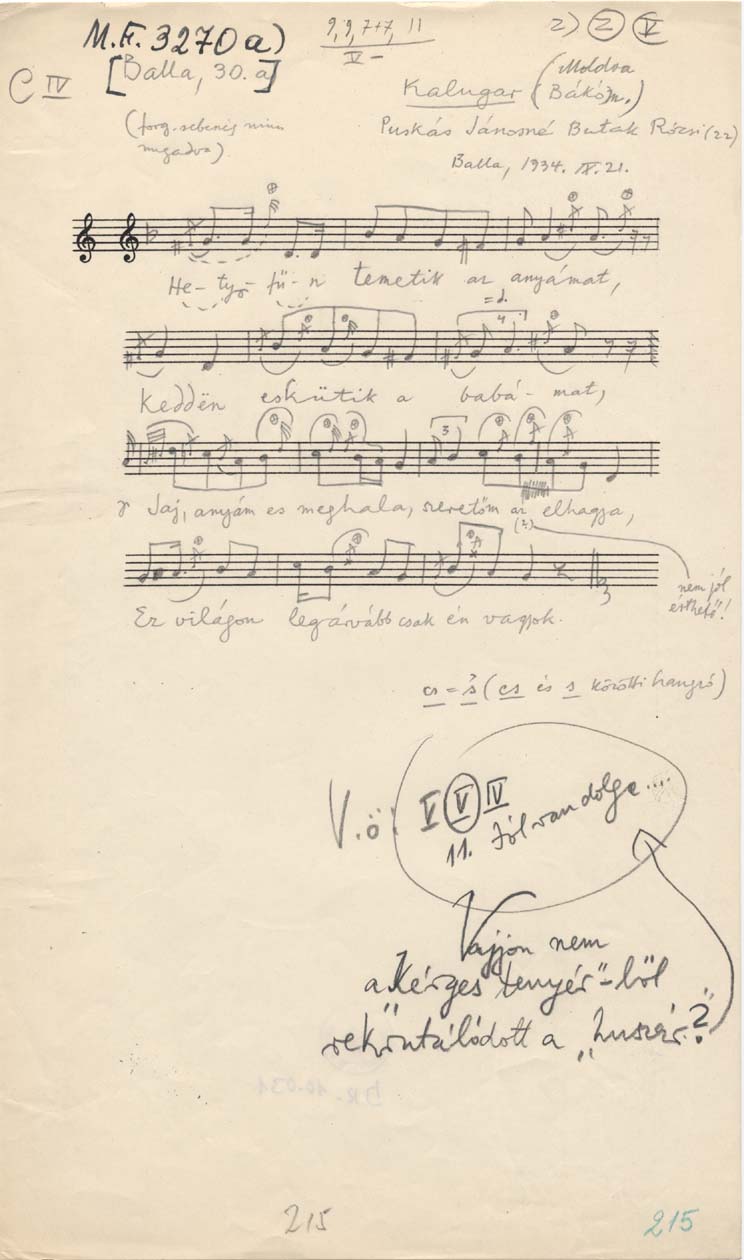 M.F. 3270 a)
9, 9, 7+7, 11
V –
2) 2 V
C IV
[Balla, 30. a]
Kalugar (Moldva
Bákó m.)
(forg. sebesség nincs
megadva)
Puskás Jánosné Butak Rózsi (22)
Balla, 1934. IX. 21.
He- tyf- fü- n temetik az anyámat,
Keddën esḱütik a babá- mat,
3
Jaj, anyám es meghala, szeretőm az elhagya,
(?)
nem jól
érthető!
Ez világon legárvább csak én vagyok.
cs = š (cs és s közötti hangzó)
V.ö: V V IV
11. Jól van dolga....
Vajjon nem
a "Kérges tenyér"-ből
rekrutálódott a "huszár"?
DR. 10.031
215
215